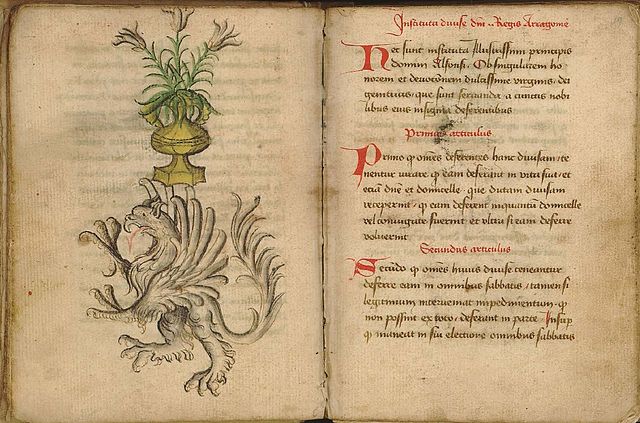 Instituta divise dni .. Regis Arragonie
Nec sunt instituta Illustrissimi principis
domini Alfonsi. Ob singularem ho
norem et devotionem dulcissime virginis. dei
genitricis, que sunt servanda a cunctis nobi
libus eius insignia deferentibus
Primus articulus
Primo q omes deferentes hanc divisam, te
nentur iurare q eam deferant in vita sua, et
etia dne et domicelle. que dictam divisam
receperint, q eam deferent inquantu domicelle
vel coniugate fuerint et ultra si eam deferre
voluerint
Secundus articulus
Secudo q omes huius divise teneantur
deferre eam in omnibus sabbatis, tamen si
legitimum interveniat impedimentum. q
non possint ex toto, deferant in parte. Insup
q maneat in sui electione omnibus sabbatis